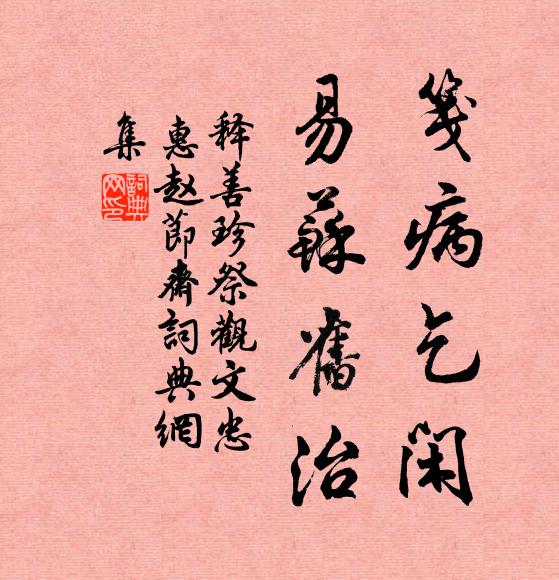 箋病乞閑
易蘇舊治
釋善珍祭觀文忠
惠趙節齋詞典網
集
詞典
网印